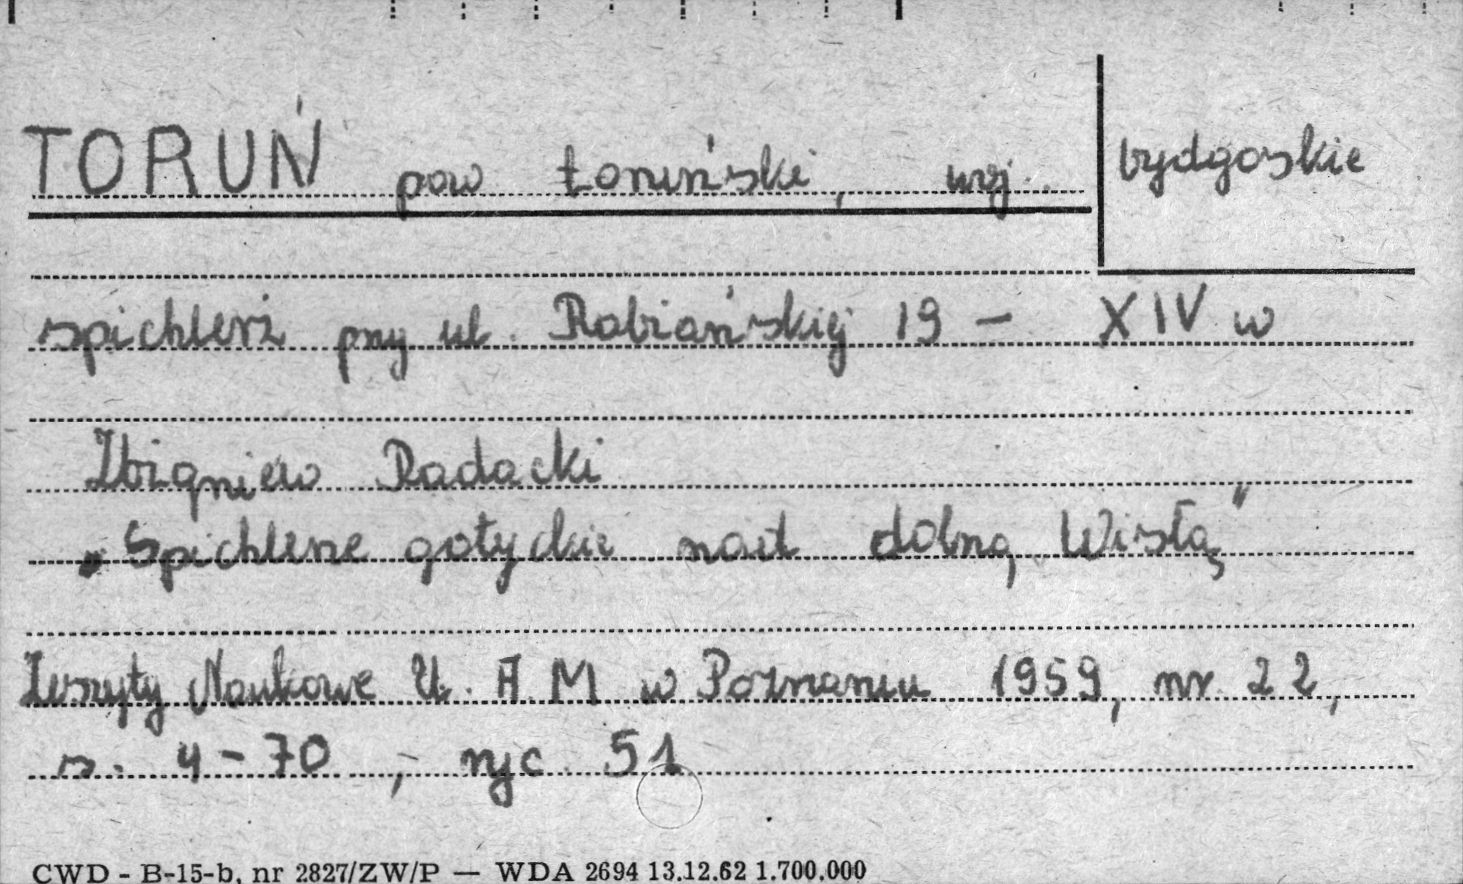 TORUŃ pow toruński, woj. bydgoskie
spichlerz przy ul. Rabiańskiej 19 - XIV w
Zbigniew Radacki
„Spichlerze gotyckie nad dolną Wisłą"
Zeszyty Naukowe U. A M w Poznaniu 1959, nr 22,
s. 4-70, - ryc 51
CWD - B-15-b, nr 2827/ZW/P — WDA 2694 13.12.62 1.700.000